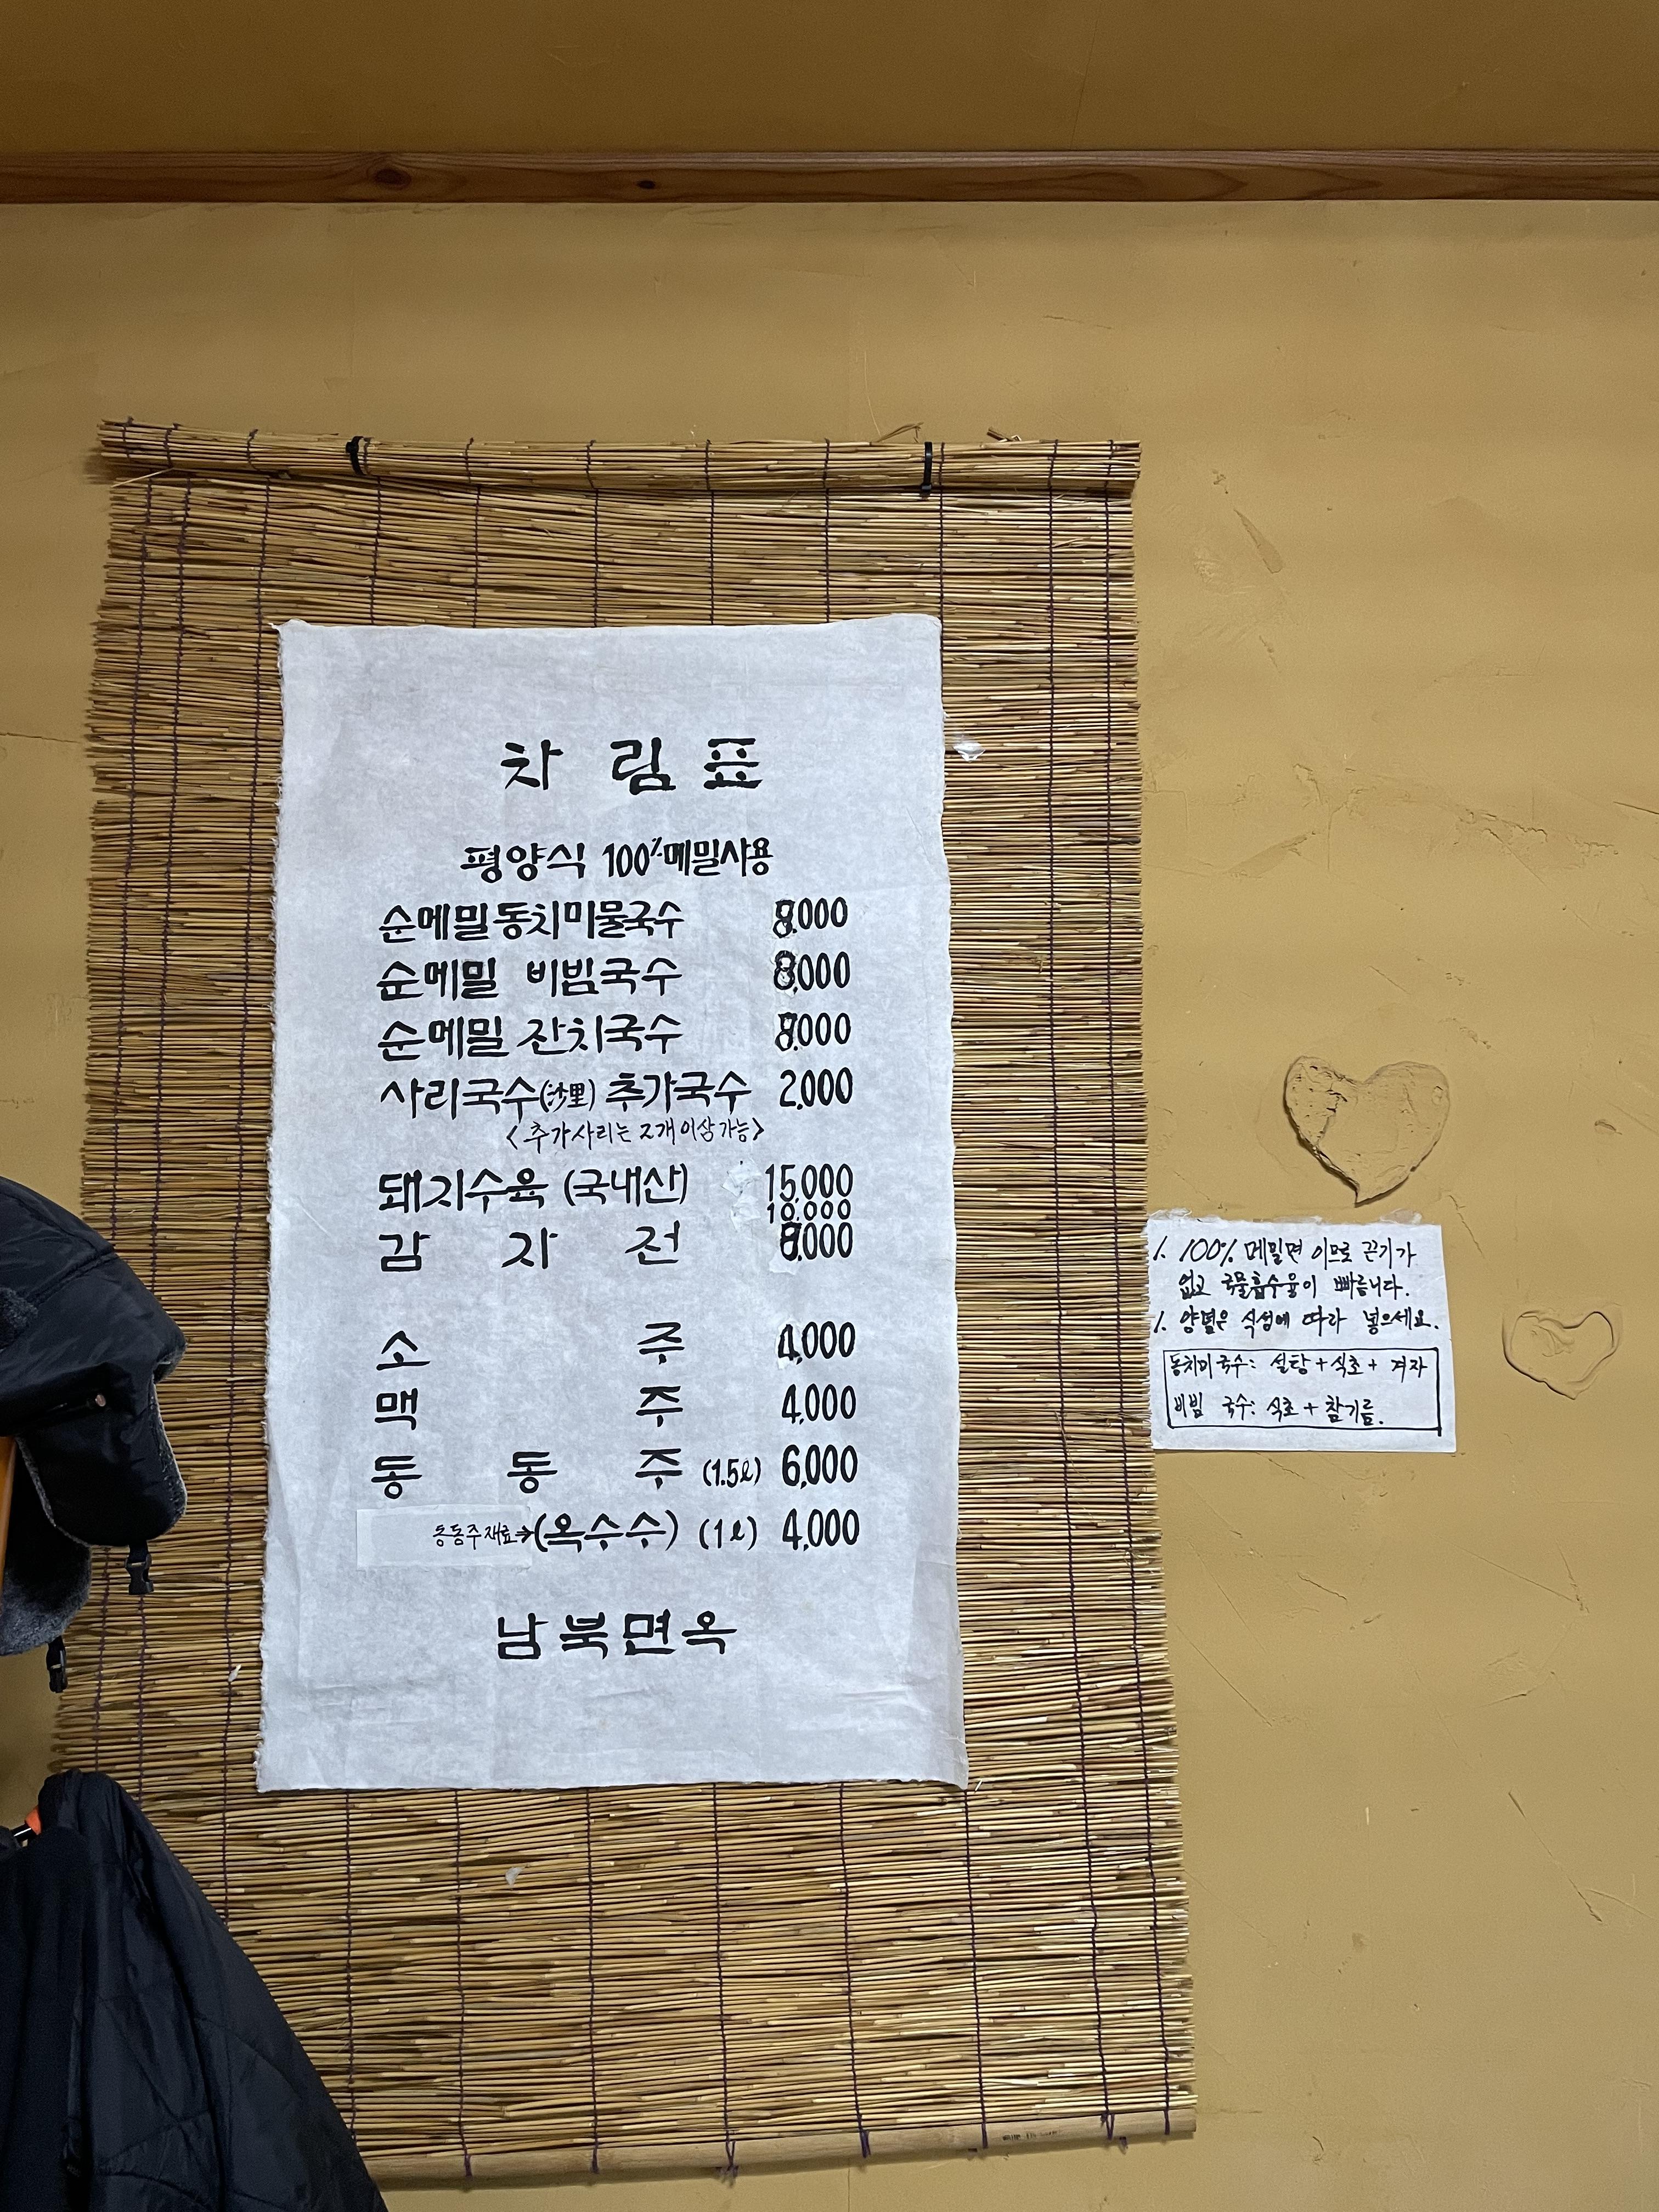 차림표
평양식 100% 메밀사용
순메밀동치미물국수 8,000
순메밀 비빔국수 8,000
순메밀 잔치국수 8,000
사리국수(沙里) 추가국수 2,000
<추가사리는 2개이상가능>
돼지수육 (국내산) 15,000
10,000
감자전 8,000
소주 4,000
맥주 4,000
동동주 (1.5ℓ) 6,000
동동주재료→(옥수수) (1ℓ) 4,000
남북면옥
1. 100% 메밀면 이므로 끈기가
없고 국물흡수율이 빠릅니다.
1. 양념은 식성에 따라 넣으세요.
동치미국수: 설탕+식초+겨자
비빔 국수: 식초+참기름.